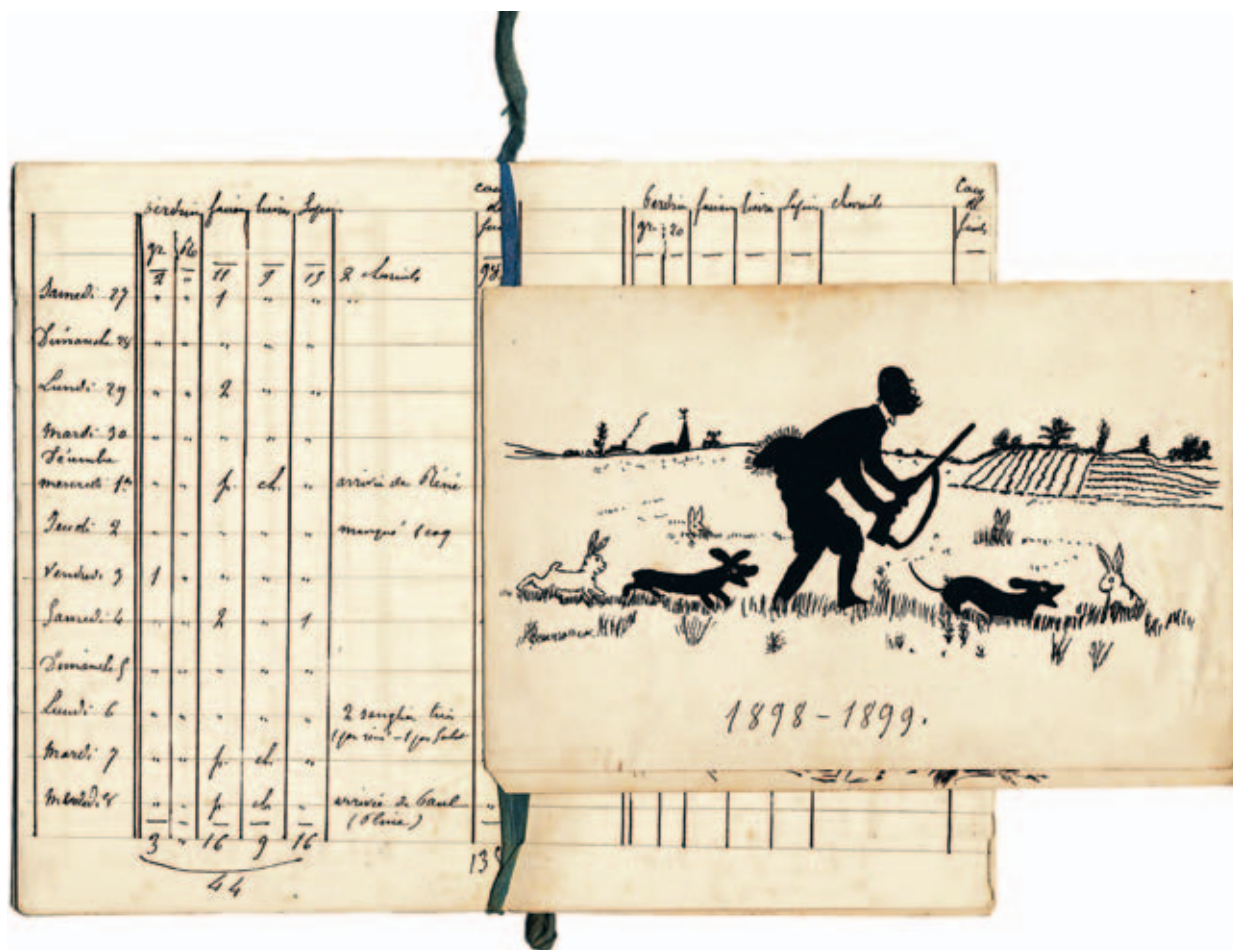 perdrix faisan lièvre lapin
gr.
2 " 11 9 15 2 chevreuils 98
Samedi 27 " " 1 " " "
Dimanche 28 " " " " "
Lundi 29 " " 2 " "
Mardi 30 " " " " "
Décembre
mercredi 1er " " p. ch. " arrivée de Réné
Jeudi 2 " " " " " manqué 1 coq
Vendredi 3 1 " " " "
Samedi 4 " " 2 " 1
Dimanche 5 " " " " "
Lundi 6 " " " " " 2 sanglier tués
1 par réné - 1 par
Mardi 7 " " p. ch. "
Mercredi 8 " " p. ch. " arrivée de Paul "
3 " 16 9 16
44
perdrix faisan lièvre lapin chevreuils Coup
de
fusils
gr.
1898-1899.